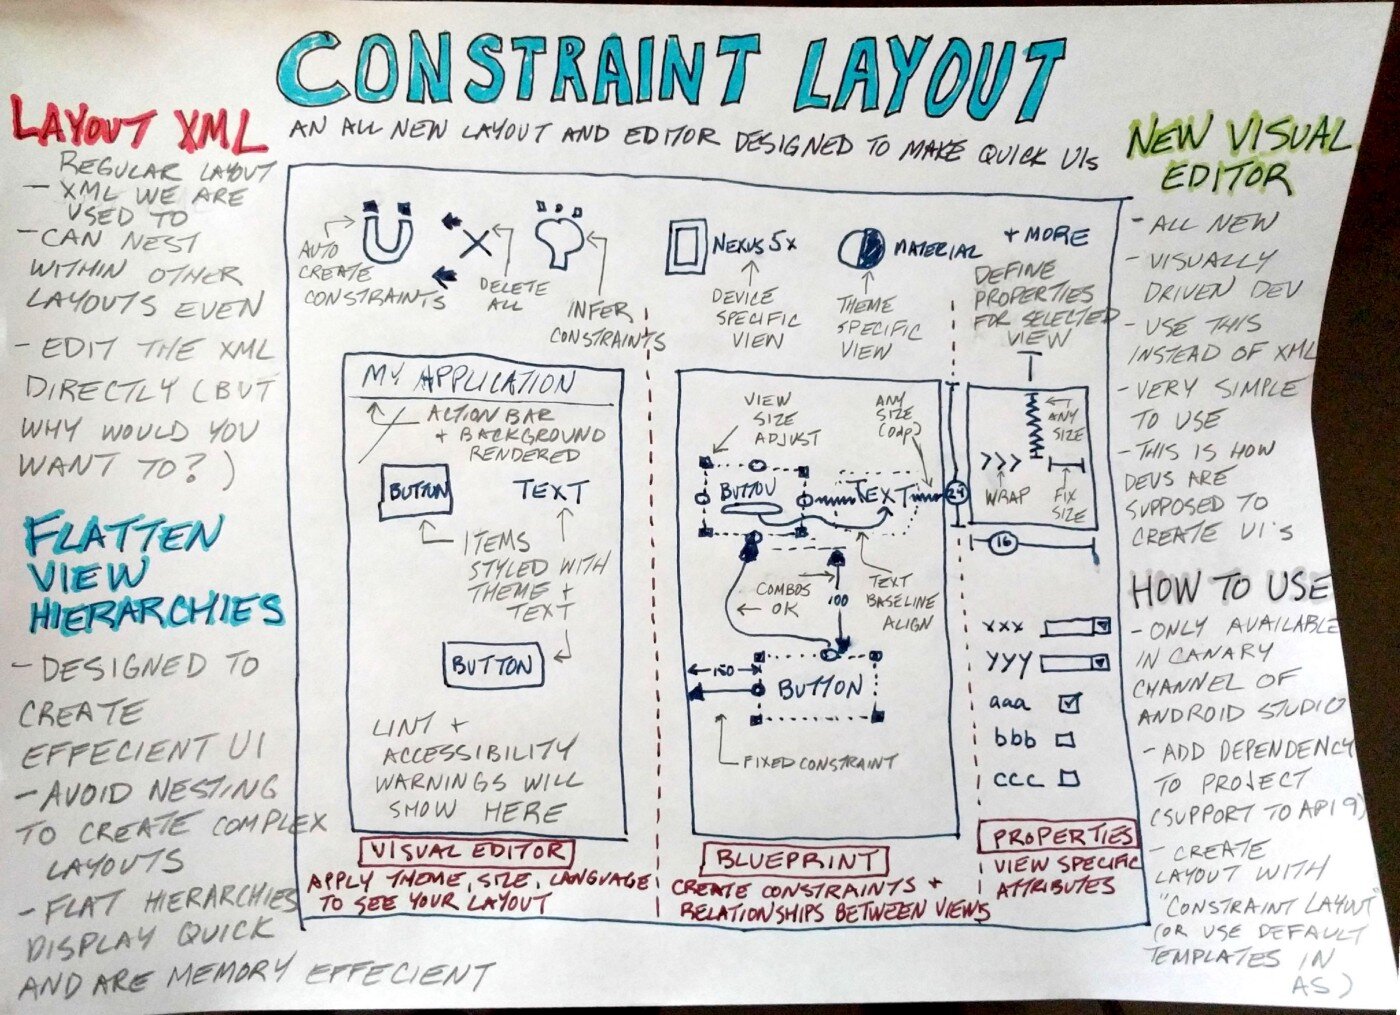 CONSTRAINT LAYOUT
AN ALL NEW LAYOUT AND EDITOR DESIGNED TO MAKE QUICK UIs
LAYOUT XML
REGULAR LAYOUT
- XML WE ARE
USED TO
- CAN NEST
WITHIN OTHER
LAYOUTS EVEN
- EDIT THE XML
DIRECTLY (BUT
WHY WOULD YOU
WANT TO?)
FLATTEN
VIEW
HIERARCHIES
- DESIGNED TO
CREATE
EFFECIENT UI
- AVOID NESTING
TO CREATE COMPLEX
LAYOUTS
- FLAT HIERARCHIES
DISPLAY QUICK
AND ARE MEMORY EFFECIENT
AUTO
CREATE
CONSTRAINTS
DELETE
ALL
INFER
CONSTRAINTS
NEXUS 5x
DEVICE
SPECIFIC
VIEW
MATERIAL
THEME
SPECIFIC
VIEW
+ MORE
DEFINE
PROPERTIES
FOR SELECTED
VIEW
MY APPLICATION
ACTION BAR
+ BACKGROUND
RENDERED
BUTTON
TEXT
ITEMS
STYLED WITH
THEME +
TEXT
BUTTON
LINT +
ACCESSIBILITY
WARNINGS WILL
SHOW HERE
VISUAL EDITOR
APPLY THEME, SIZE, LANGUAGE
TO SEE YOUR LAYOUT
VIEW
SIZE
ADJUST
ANY
SIZE
(0dp)
BUTTON
TEXT
24
COMBOS
OK
100
TEXT
BASELINE
ALIGN
150
BUTTON
FIXED CONSTRAINT
BLUEPRINT
CREATE CONSTRAINTS +
RELATIONSHIPS BETWEEN VIEWS
ANY
SIZE
>>>
WRAP
FIX
SIZE
16
xxx
yyy
aaa
bbb
ccc
PROPERTIES
VIEW SPECIFIC
ATTRIBUTES
NEW VISUAL
EDITOR
- ALL NEW
- VISUALLY
DRIVEN DEV
- USE THIS
INSTEAD OF XML
- VERY SIMPLE
TO USE
- THIS IS HOW
DEVS ARE
SUPPOSED TO
CREATE UI's
HOW TO USE
- ONLY AVAILABLE
IN CANARY
CHANNEL OF
ANDROID STUDIO
- ADD DEPENDENCY
TO PROJECT
(SUPPORT TO API 9)
- CREATE
LAYOUT WITH
"CONSTRAINT LAYOUT"
(OR USE DEFAULT
TEMPLATES IN
AS)